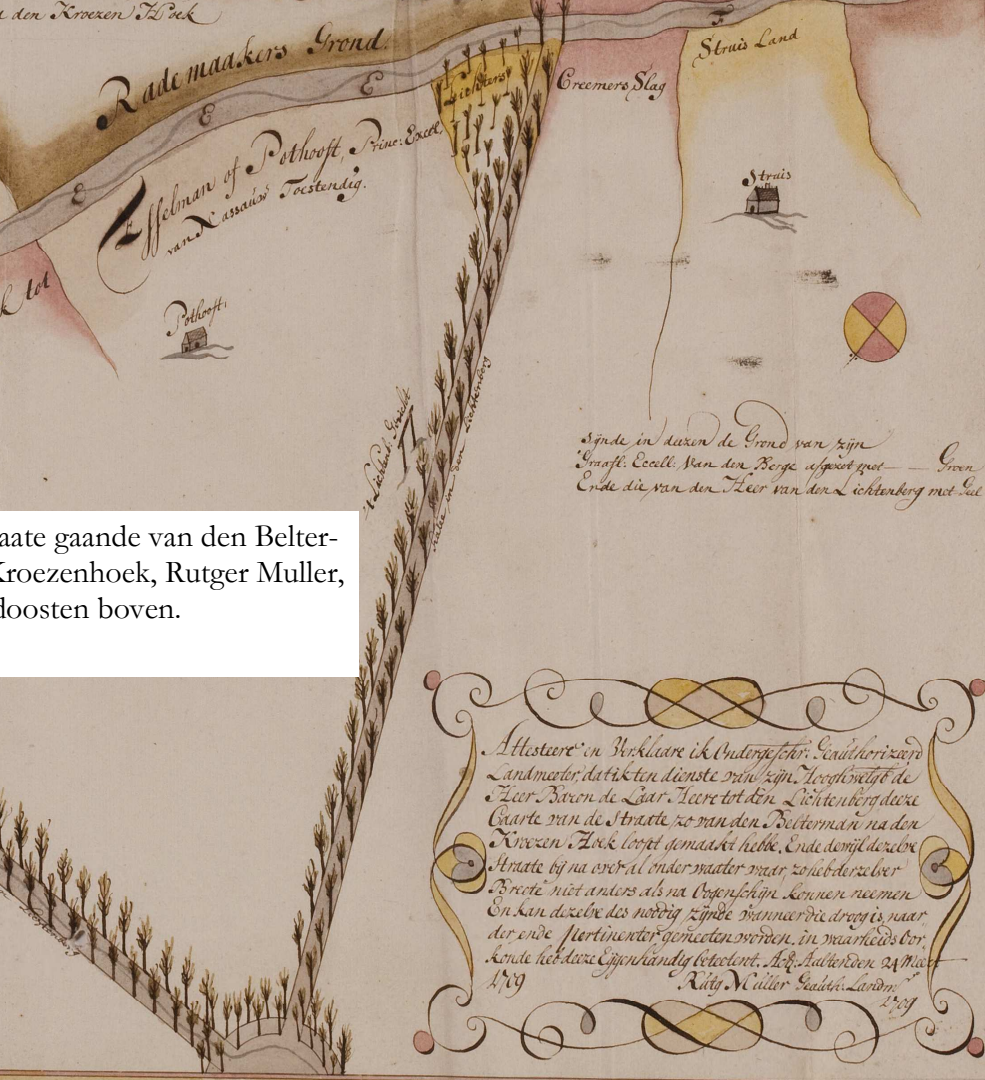 den Kroezen Hoek
Rademaakers Grond.
E
E
E
F
Lichters
Creemers Slag
Struis Land
Esselman of Pothooft, Princ: Excell,
van Nassauw Toestendig.
Struis
k tot
Pothooft.
't Lichtenb: Gericht
Allee, in den Lichtenberg
Sÿnde in deezen de Grond van zÿn
Graafl: Eccell: Van den Berge afgezet met — Groen
Ende die van den Heer van den Lichtenberg met Geel
aate gaande van den Belter-
Kroezenhoek, Rutger Muller,
doosten boven.
Attesteere en Verklaare ik Ondergeschr: Geauthorizeerd
Landmeeter, dat ik ten dienste van zÿn Hooghwelgb de
Heer Baron de Laar Heere tot den Lichtenberg deeze
Caarte van de Straate, zo van den Belterman na den
Kroezen Hoek loopt gemaakt hebbe, Ende dewÿl dezelve
Straate bÿ na over al onder waater waar, zo heb derzelver
Breete niet anders als na Oogenschÿn konnen neemen
En kan dezelve des noodig zÿnde wanneer die droog is, naar
der ende pertinenter gemeeten worden. in waarheids Oor,
konde heb deeze Eÿgenhandig getectent. Act: Aalten den 24 Meert
1709 Rutg Muller Geauth: Landmr
1709